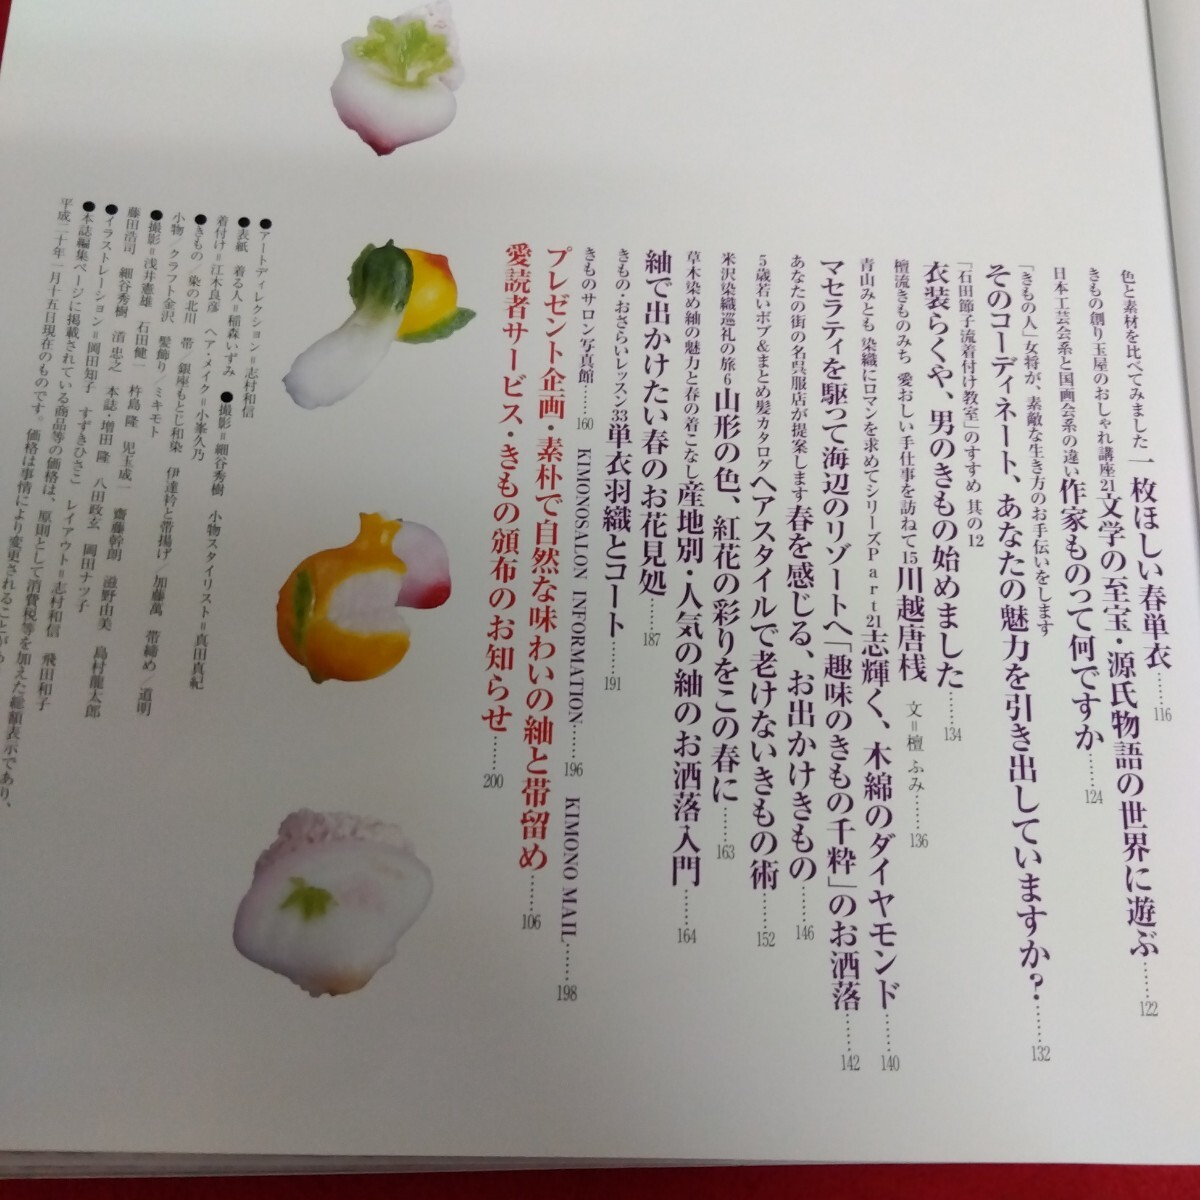 色と素材を比べてみました 一枚ほしい春単衣……116
きもの創り玉屋のおしゃれ講座21 文学の至宝・源氏物語の世界に遊ぶ……122
日本工芸会系と国画会系の違い 作家ものって何ですか……124
「きもの人」女将が、素敵な生き方のお手伝いをします
そのコーディネート、あなたの魅力を引き出していますか?……132
「石田節子流着付け教室」のすすめ 其の12
衣装らくや、男のきもの始めました……134
檀流きものみち 愛おしい手仕事を訪ねて15 川越唐桟 文=檀 ふみ……136
青山みとも 染織にロマンを求めてシリーズPart21 志輝く、木綿のダイヤモンド……140
マセラティを駆って海辺のリゾートへ「趣味のきもの千粋」のお洒落……142
あなたの街の名呉服店が提案します 春を感じる、お出かけきもの……146
5歳若いボブ&まとめ髪カタログ ヘアスタイルで老けないきもの術……152
米沢染織巡礼の旅6 山形の色、紅花の彩りをこの春に……163
草木染め紬の魅力と春の着こなし 産地別・人気の紬のお洒落入門……164
紬で出かけたい春のお花見処……187
きもの・おさらいレッスン33 単衣羽織とコート……191
きものサロン写真館……160 KIMONOSALON INFORMATION……196 KIMONO MAIL……198
プレゼント企画・素朴で自然な味わいの紬と帯留め……106
愛読者サービス・きもの頒布のお知らせ……200
●アートディレクション=志村和信
●表紙 着る人=稲森いずみ ●撮影=細谷秀樹 小物スタイリスト=真田真紀
着付け=江木良彦 ヘア・メイク=小峯久乃
●きもの/染の北川 帯/銀座もとじ和染 伊達衿と帯揚げ/加藤萬 帯締め/道明
小物/クラフト金沢 髪飾り/ミキモト
●撮影=浅井憲雄 石田健一 杵島 隆 児玉成一 齋藤幹朗 滋野由美 島村龍太郎
藤田浩司 細谷秀樹 渞 忠之 本誌・増田 隆 八田政玄 岡田ナツ子
●イラストレーション=岡田知子 すずきひさこ レイアウト=志村和信 飛田和子
●本誌編集ページに掲載されている商品等の価格は、原則として消費税等を加えた総額表示であり、
平成二十年一月十五日現在のものです。価格は事情により変更されることが